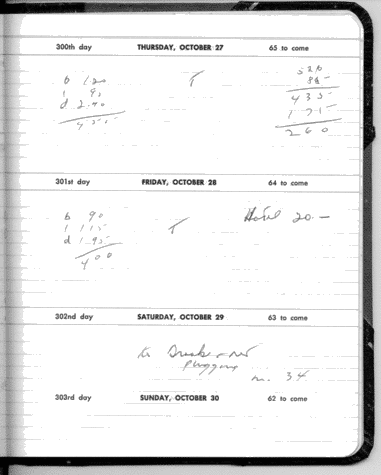 300th day THURSDAY, OCTOBER 27 65 to come
b 1.20
l 95
d 2.40
455
T
520
85
435
175
260
301st day FRIDAY, OCTOBER 28 64 to come
b 90
l 1.15
d 1.95
400
T
Hotel 20.—
302nd day SATURDAY, OCTOBER 29 63 to come
to
m. 34
303rd day SUNDAY, OCTOBER 30 62 to come